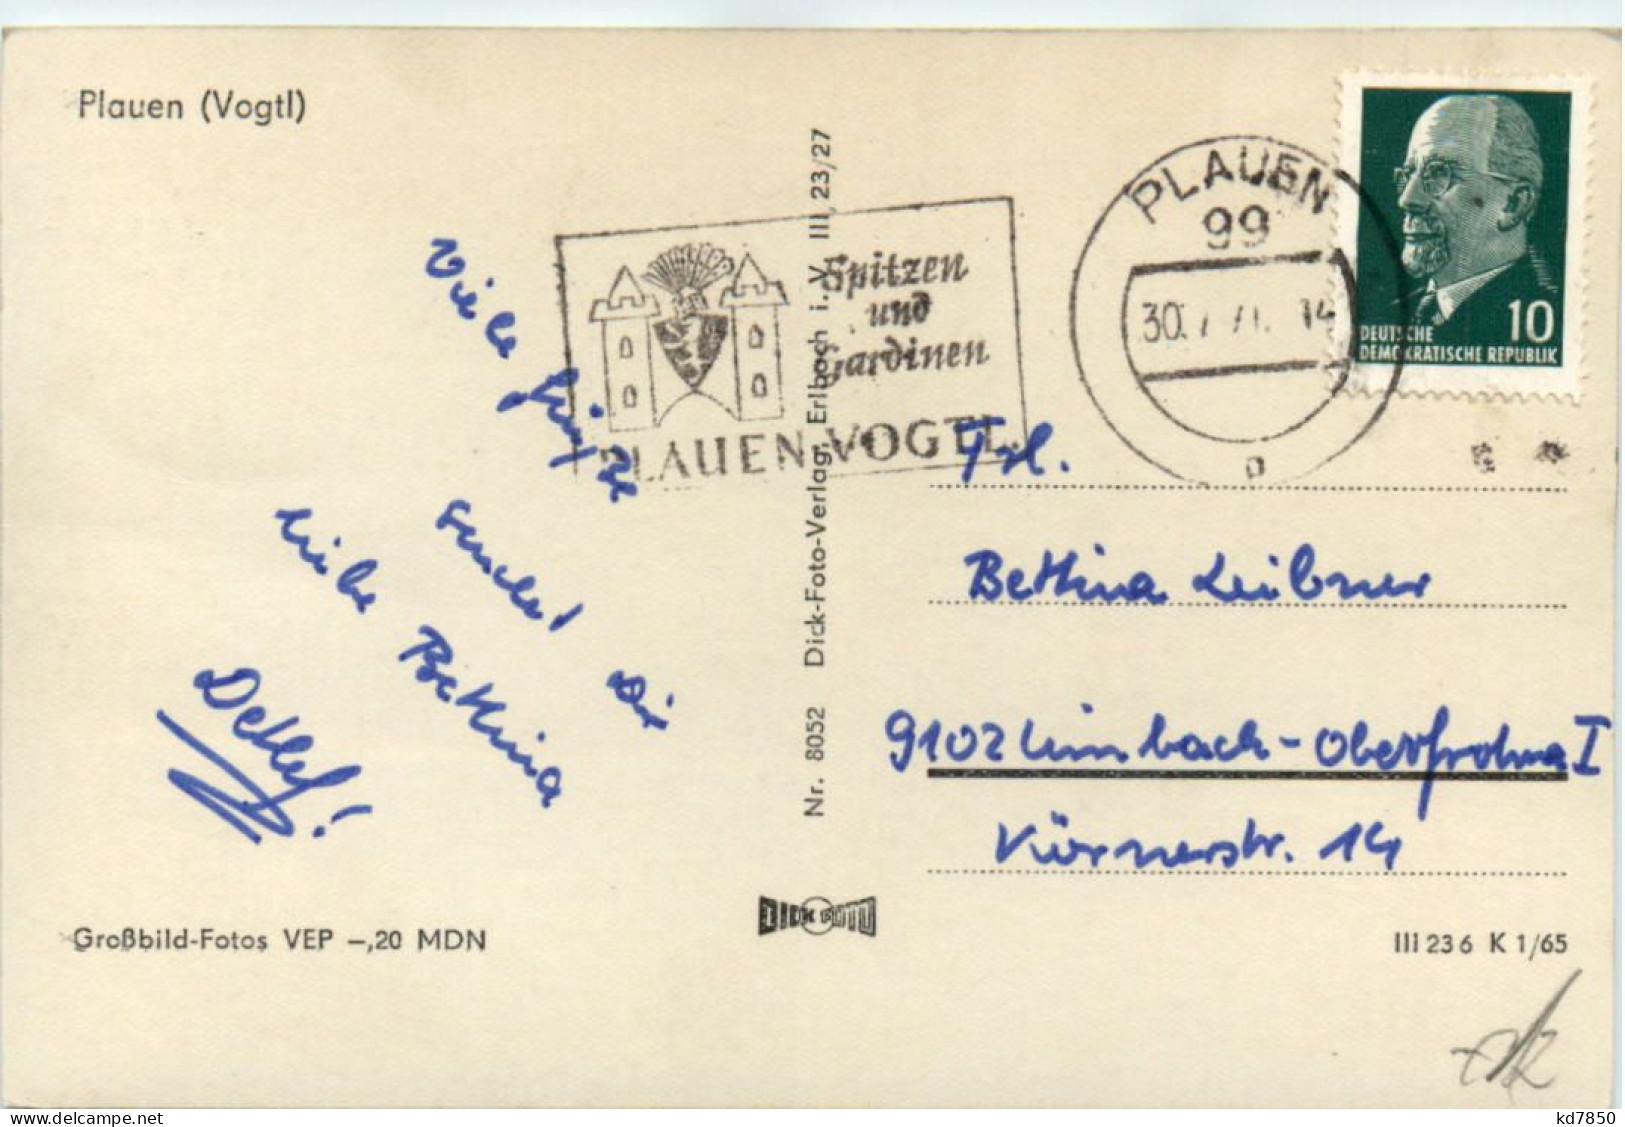 Plauen (Vogtl)
Viele Grüße
sendet Dir
liebe Bettina
Detlef!
Großbild-Fotos VEP –,20 MDN
Nr. 8052 Dick-Foto-Verlag, Erlbach i. V. III, 23/27
DICK FOTO
Spitzen
und
Gardinen
PLAUEN VOGTL.
PLAUEN
99
30. 7. 71. 14
DEUTSCHE
DEMOKRATISCHE REPUBLIK
10
Frl.
Bettina Leibner
9102 Limbach-Oberfrohna I
Körnerstr. 14
III 23 6 K 1/65
delcampe.net
kd7850